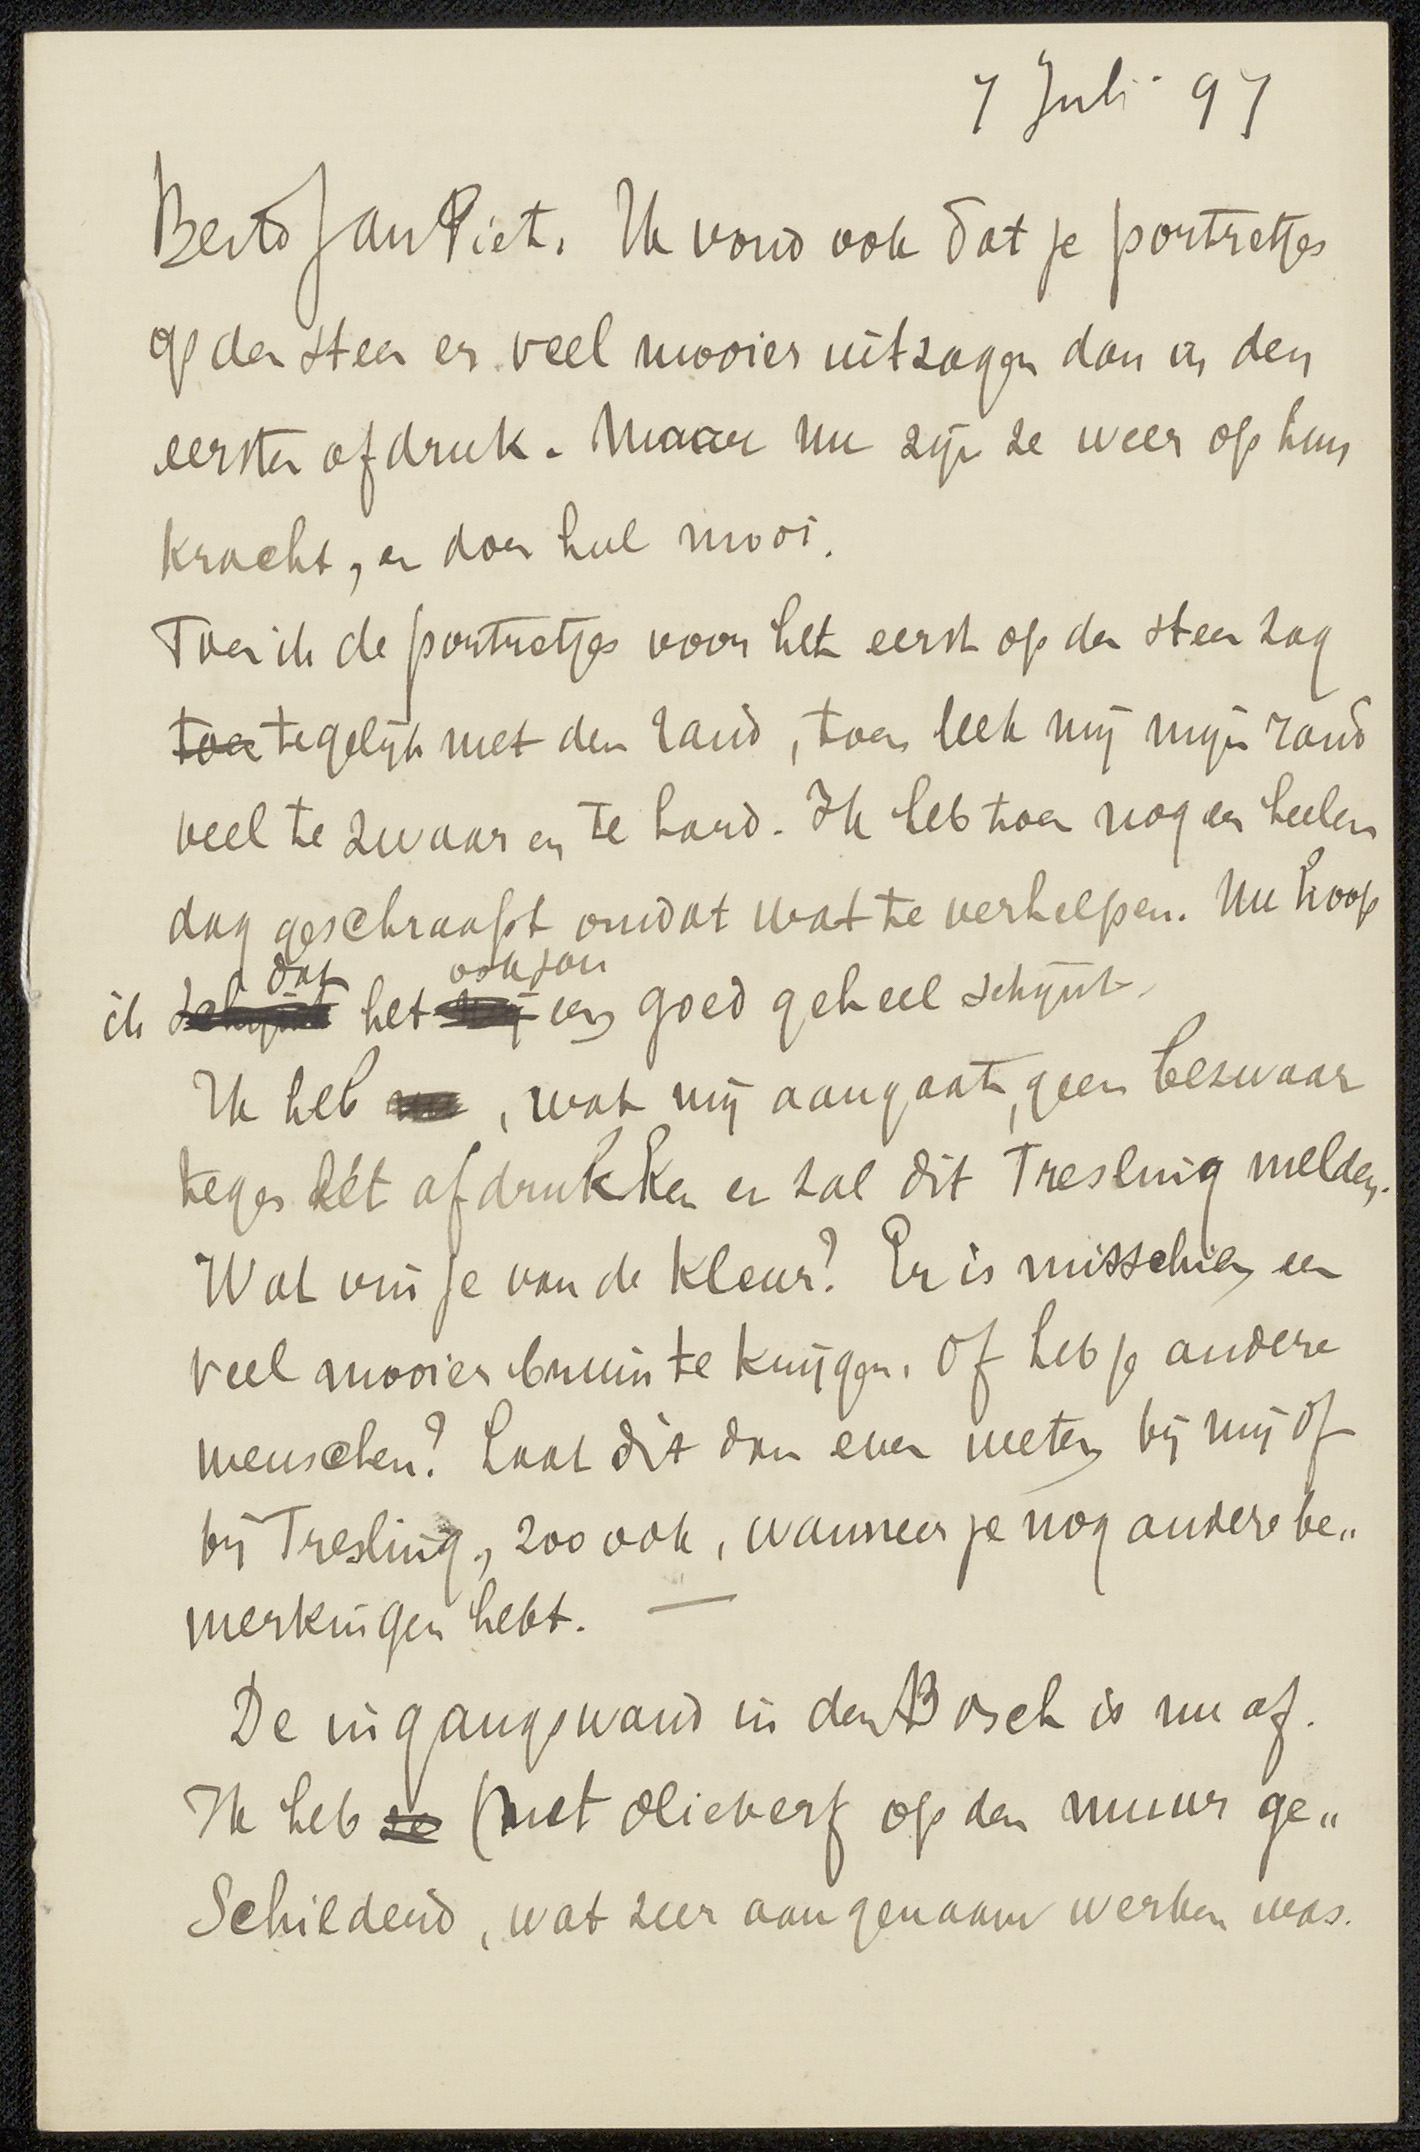 7 Juli 97
Beste Jan Piet. Ik vond ook dat je portretjes
op den steen er veel mooier uitzagen dan in den
eersten afdruk. Maar nu zijn ze weer op hun
kracht, en doen heel mooi.
Toen ik de portretjes voor het eerst op den steen zag
toen tegelijk met den rand, toen leek mij mijn rand
veel te zwaar en te hard. Ik heb toen nog een heelen
dag geschraapt om dat wat te verhelpen. Nu hoop
dat ook jou
ik schijnt het een goed geheel schijnt.
Ik heb , wat mij aangaat, geen bezwaar
tegen hét afdrukken en zal dit Tresling melden.
Wat vin je van de kleur? Er is misschien een
veel mooier bruin te krijgen. Of heb je andere
menschen? Laat dit dan even weten bij mij of
bij Tresling, zoo ook, wanneer je nog andere be„
merkingen hebt. —
De ingangswand in den Bosch is nu af.
Ik heb ze (met olieverf op den muur ge„
Schilderd, wat zeer aangenaam werken was.